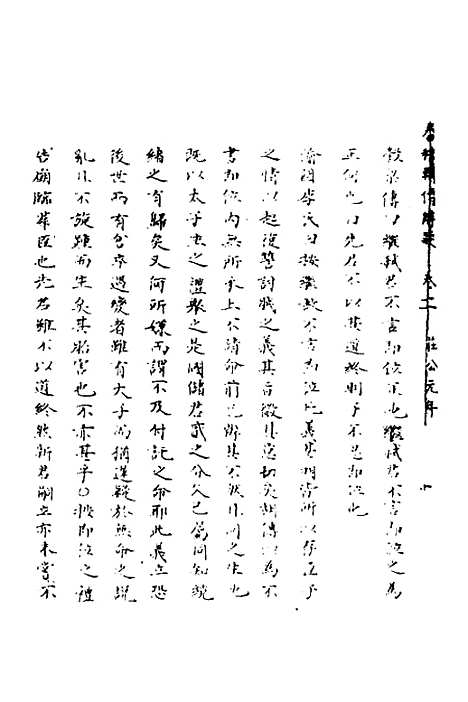 春秋 傳 卷二 莊公元年 十
穀梁傳曰繼弑君不言即位正也繼弑君不言即位之為
正何也曰先君不以其道終則子不忍即位也
李氏曰 繼故不言即位 義 胡 所以存正予
之情以起復讐討賊之義其旨微其意切矣胡傳以為不
書即位內無所承上不請命前已辨其不然且同之生也
既以太子生之禮舉之是國儲君貳之分久已屬同知統
緒之有歸矣又何所嫌而謂不及付託之命耶此義立恐
後世而有 卒遇變者雖有太子而稱遺疑於無命之說
亂且不旋踵而生矣其貽害也不亦甚乎 即位之禮
告廟臨羣臣也先君雖不以道終然新君嗣立亦未嘗不